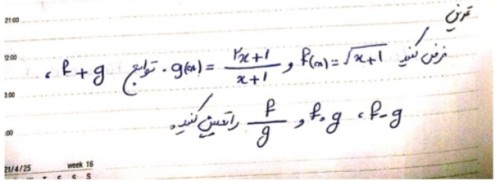 21:00
تمرین
12:00 فرض کنید f(x)=√x+1 و g(x)= ۲x+1/x+1 . توابع f+g ،
3:00
f-g ، f.g و f/g را تعیین کنید.
:00
21/4/25 week 16